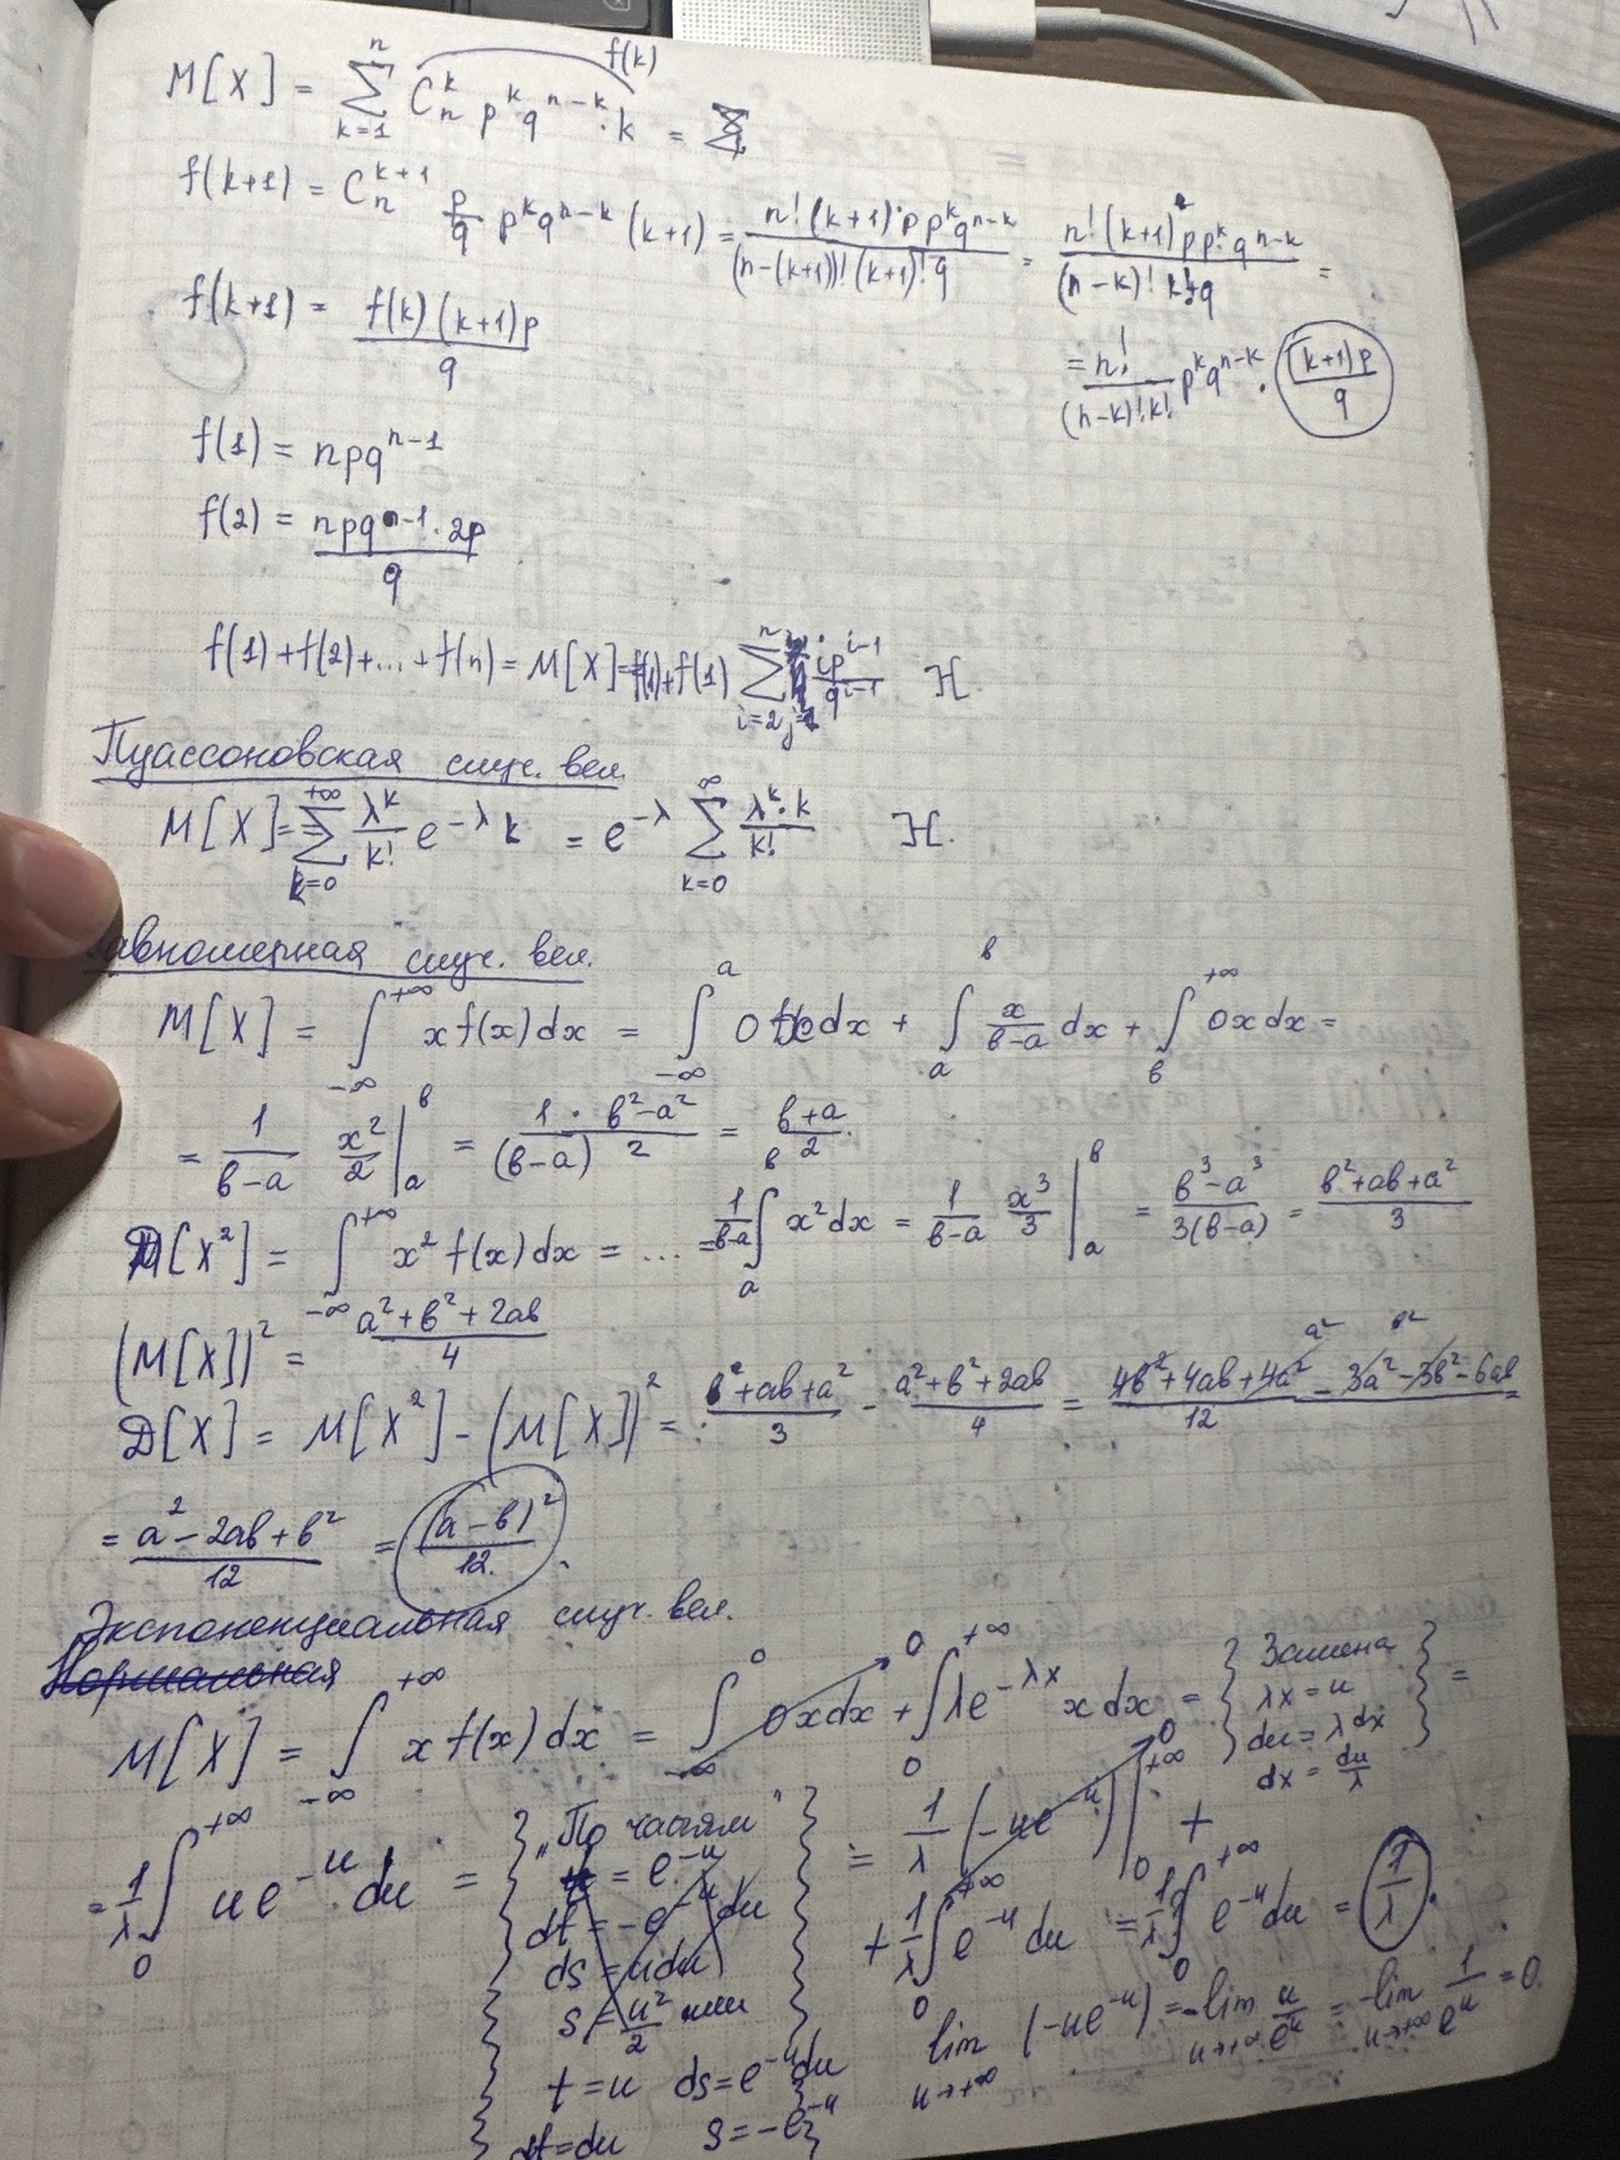 M[X] = ∑_{k=1}^{n} C_n^k p^k q^{n-k} · k =
f(k)
f(k+1) = C_n^{k+1} p/q p^k q^{n-k} (k+1) = n! (k+1) · p p^k q^{n-k} / (n-(k+1))! (k+1)! q = n! (k+1) p p^k · q^{n-k} / (n-k)! k! q =
f(k+1) = f(k) (k+1) p / q
= n! / (n-k)! k! p^k q^{n-k} · (k+1) p / q
f(1) = npq^{n-1}
f(2) = npq^{n-1} · 2p / q
f(1) + f(2) + ... + f(n) = M[X] = f(1) + f(1) ∑_{i=2}^{n} ip^{i-1} / q^{i-1} Н.
Пуассоновская случ. вел.
M[X] = = ∑_{k=0}^{+∞} λ^k / k! e^{-λ} k = e^{-λ} ∑_{k=0}^{∞} λ^k · k / k! Н.
авномерная случ. вел.
M[X] = ∫_{-∞}^{+∞} x f(x) dx = ∫_{-∞}^{a} 0 x dx + ∫_{a}^{в} x / (в-a) dx + ∫_{в}^{+∞} 0x dx =
= 1 / (в-a) x² / 2 |_a^в = 1 · в² - a² / (в-a) 2 = в+a / 2.
M[X²] = ∫_{-∞}^{+∞} x² f(x) dx = ... = 1 / (в-a) ∫_a^в x² dx = 1 / (в-a) x³ / 3 |_a^в = в³ - a³ / 3(в-a) = в² + aв + a² / 3
(M[X])² = a² + в² + 2aв / 4
D[X] = M[X²] - (M[X])² = в² + aв + a² / 3 - a² + в² + 2aв / 4 = 4в² + 4aв + 4a² - 3a² - 3в² - 6aв / 12 =
a² в²
= a² - 2aв + в² / 12 = (a-в)² / 12.
Экспоненциальная случ. вел.
Нормальная
M[X] = ∫_{-∞}^{+∞} x f(x) dx = ∫_{-∞}^{0} 0x dx → 0 + ∫_0^{+∞} λe^{-λx} x dx = { Замена
λx = u
du = λ dx
dx = du / λ } =
= 1/λ ∫_0^{+∞} u e^{-u} · du = { „По частям"
= e^{-u}
dt = -e^{-u} du
ds = u du
s = u² / 2 или
t = u ds = e^{-u} du
dt = du s = -e^{-u} }
= 1/λ (-ue^{-u}) |_0^{+∞} → 0 +
+ 1/λ ∫_0^{+∞} e^{-u} du = 1/λ ∫_0^{+∞} e^{-u} du = 1/λ.
lim_{u→+∞} (-ue^{-u}) = -lim_{u→+∞} u / e^u = -lim_{u→+∞} 1 / e^u = 0.